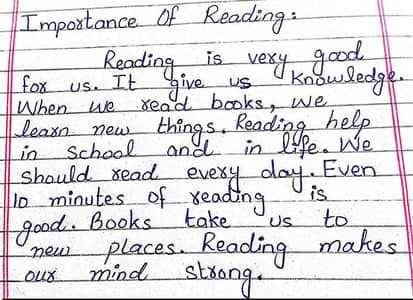 Importance Of Reading:
Reading is very good
for us. It give us Knowledge.
When we read books, we
learn new things. Reading help
in School and in life. We
Should read every day. Even
10 minutes of reading is
good. Books take us to
new places. Reading makes
our mind strong.